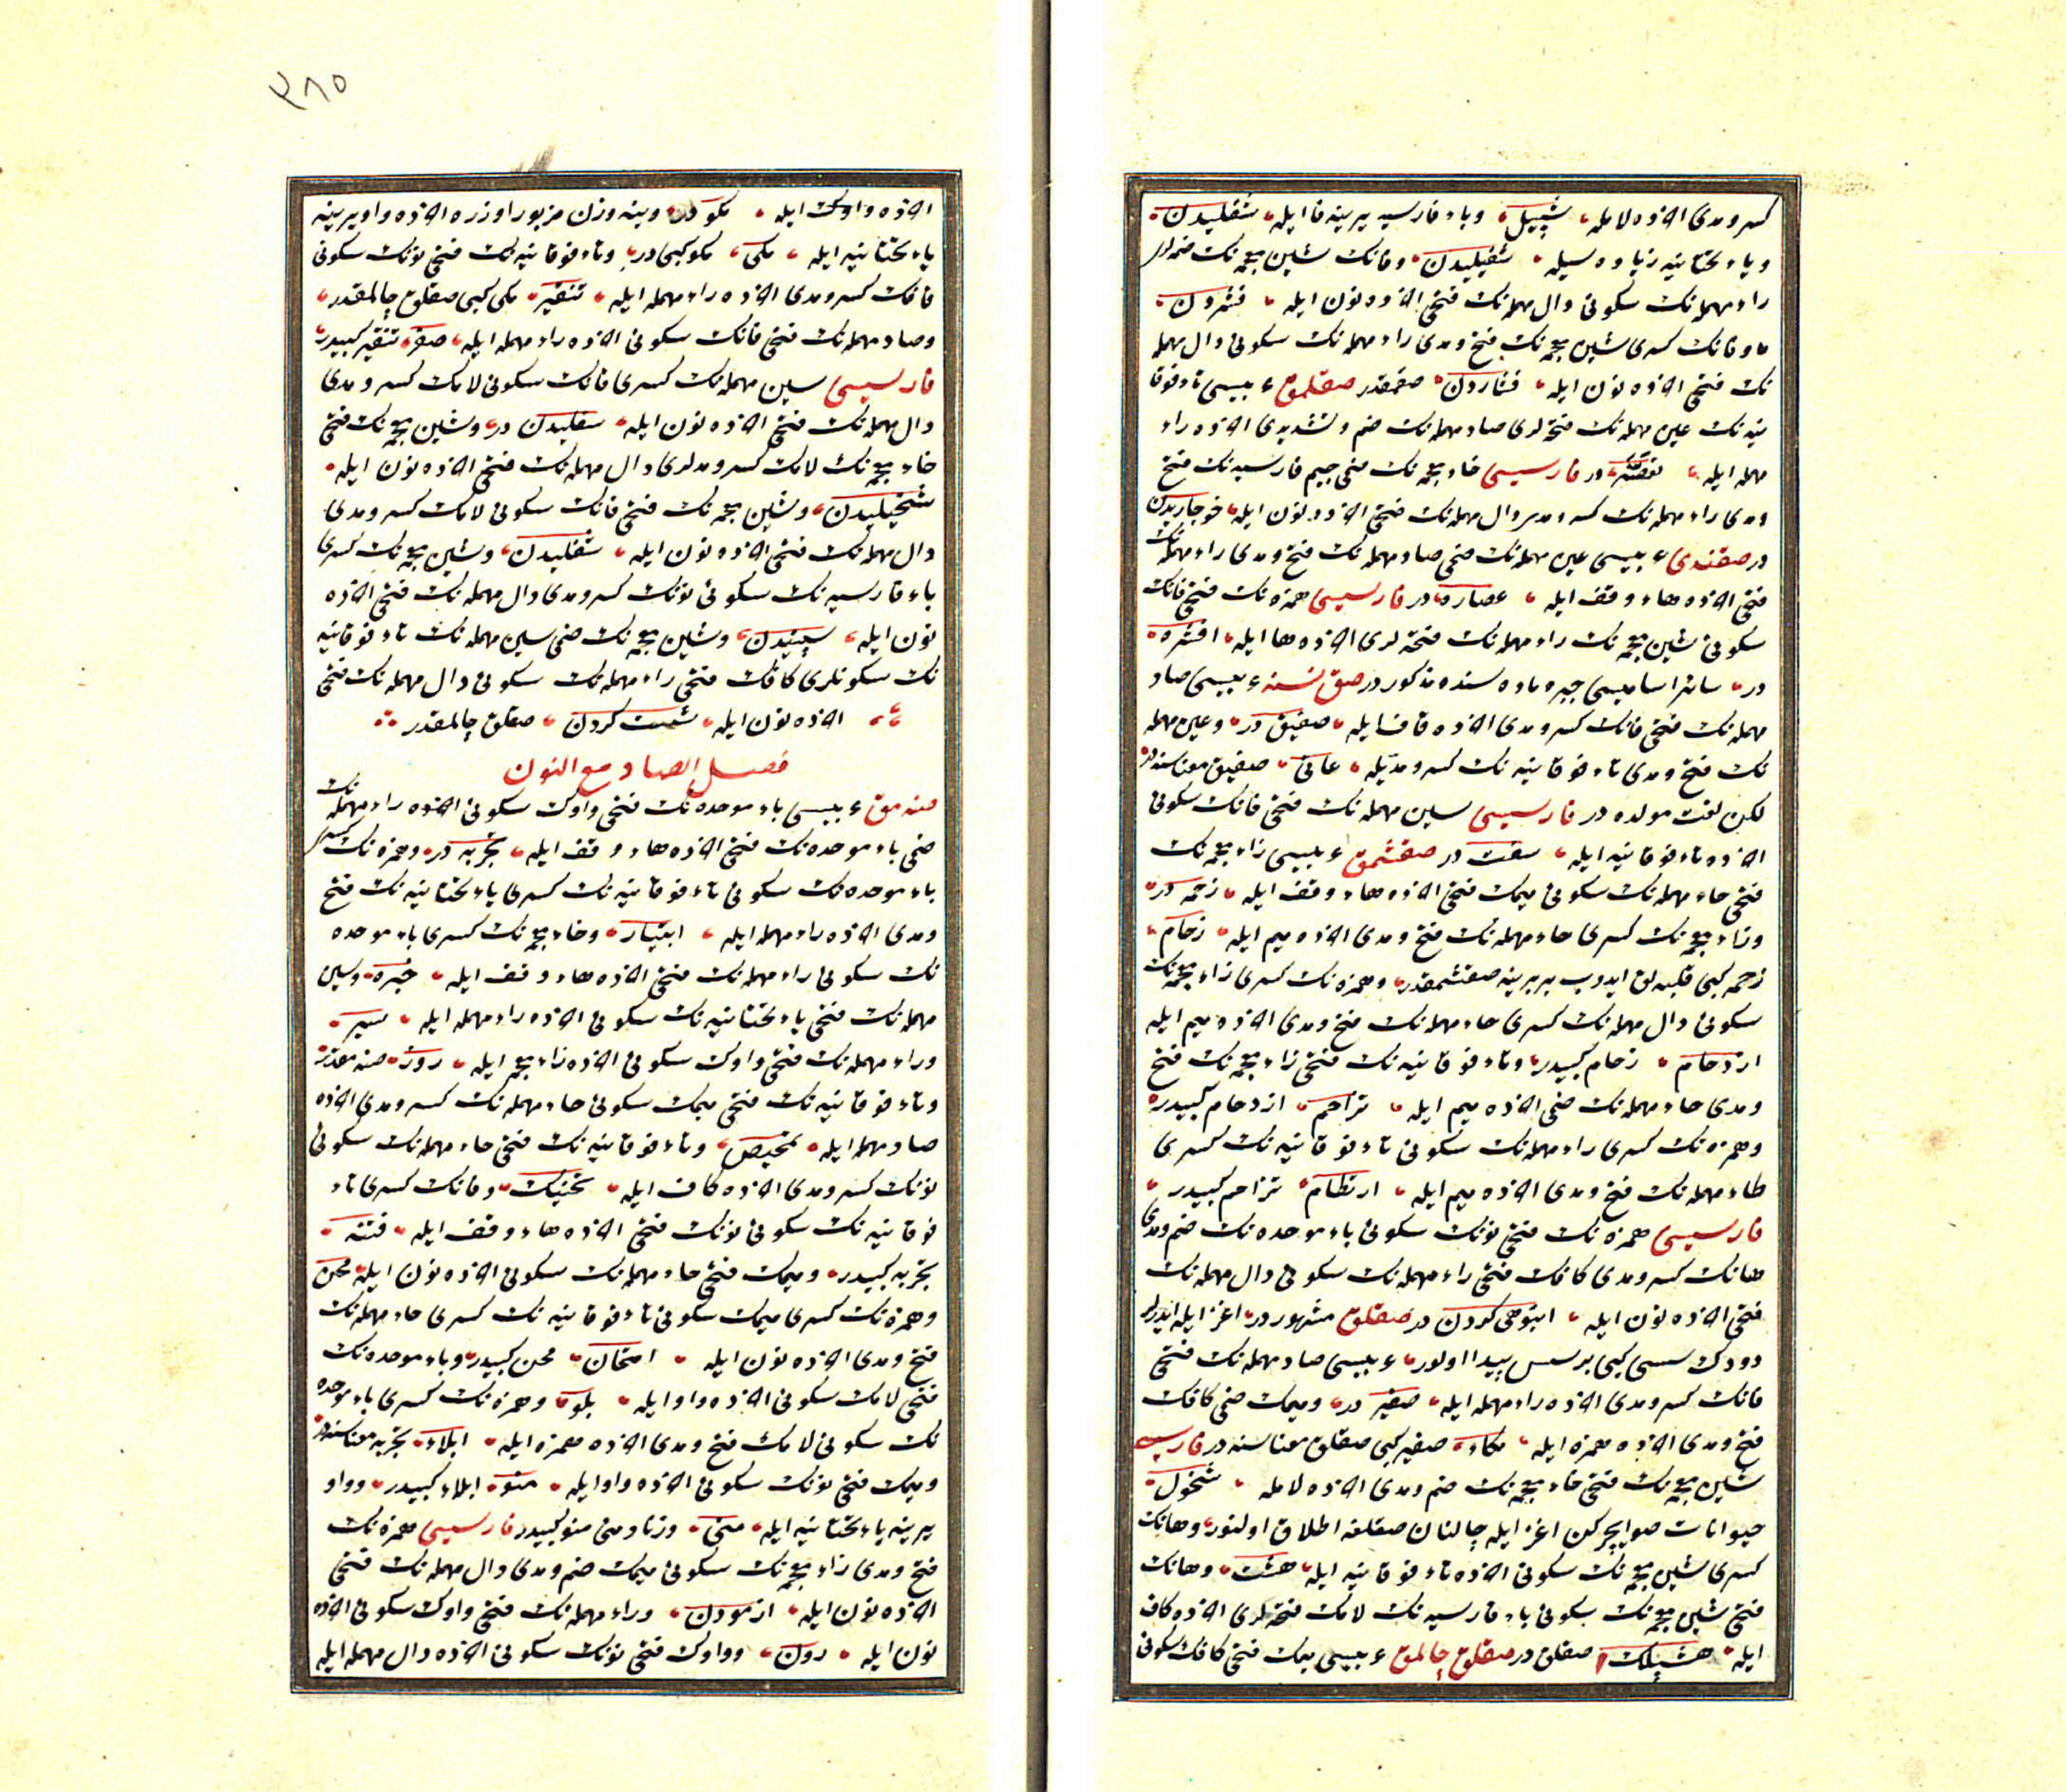 كسر و مدى اخرده لامله، شپیل، و باء فارسیه یرینه فا ایله، شفلیدن،
و یاء تحتانیه زیاده سیله، شفیلیدن، و فانك شین معجمه نك ضمه لری
راء مهمله نك سكونی دال مهمله نك فتحی اخرده نون ایله، فشردن،
و فانك كسری شین معجمه نك فتح و مدی راء مهمله نك سكونی دال مهمله
نك فتحی اخرده نون ایله، فشاردن، صقمقدر صقلمق ء بیسی تاء فوقا
نیه نك عین مهمله نك فتحه لری صاد مهمله نك ضم و تشدیدی اخرده راء
مهمله ایله، تعصر، در فارسیسی خاء معجمه نك ضمی جیم فارسیه نك فتح
و مدی راء مهمله نك كسر و مدی دال مهمله نك فتحی اخرده نون ایله،
در صقندی ء بیسی عین مهمله نك ضمی صاد مهمله نك فتح و مدی راء مهمله نك
فتحی اخرده هاء وقف ایله، عصاره، در فارسیسی همزه نك فتحی فانك
سكونی شین معجمه نك راء مهمله نك فتحه لری اخرده ها ایله، افشره،
در، سائر اسامیسی جبره ماده سنده مذكور در صق نسنه ء بیسی صاد
مهمله نك فتحی فانك كسر و مدی اخرده قاف ایله، صفیق در، و عین مهمله
نك فتح و مدی تاء فوقانیه نك كسر و مدیله، عاتی، صفیق معناسنه در
لكن لغت مولده در فارسیسی سین مهمله نك فتحی فانك سكونی
اخرده تاء فوقانیه ایله، سفت در صقشمق ء بیسی زاء معجمه نك
فتحی حاء مهمله نك سكونی میمك فتحی اخرده هاء وقف ایله، زحمه در،
و زاء معجمه نك كسری حاء مهمله نك فتح و مدی اخرده میم ایله، زحام،
زحمه كبی قلبه لق ایدوب بربرینه صقشمقدر، و همزه نك كسری زاء معجمه نك
سكونی دال مهمله نك كسری حاء مهمله نك فتح و مدی اخرده میم ایله
ازدحام، زحام كبیدر، و تاء فوقانیه نك فتحی زاء معجمه نك فتح
و مدی حاء مهمله نك ضمی اخرده میم ایله، تزاحم، ازدحام كبیدر،
و همزه نك كسری راء مهمله نك سكونی تاء فوقانیه نك كسری
طاء مهمله نك فتح و مدی اخرده میم ایله، ارتطام، تزاحم كبیدر،
فارسیسی همزه نك فتحی نونك سكونی باء موحده نك ضم و مدی
هانك كسر و مدی كافك فتحی راء مهمله نك سكونی دال مهمله نك
فتحی اخرده نون ایله، انبوهی كردن در صقلق مشهور در، اغز ایله ایدرلر
دودك سسی كبی برسس پیدا اولور، ء بیسی صاد مهمله نك فتحی
فانك كسر و مدی اخرده راء مهمله ایله، صفیر در، و میمك ضمی كافك
فتح و مدی اخرده همزه ایله، مكاء، صفیر كبی صقلق معناسنه در فارسیسی
شین معجمه نك فتحی خاء معجمه نك ضم و مدی اخرده لامله، شخول،
حیوانات صو ایچركن اغز ایله چالنان صقلغه اطلاق اولنور، و هانك
كسری شین معجمه نك سكونی اخرده تاء فوقانیه ایله، هشت، و هانك
فتحی شین معجمه نك سكونی باء فارسیه نك لامك فتحه لری اخرده كاف
ایله، هشپلك، صقلق در صقلق چالمق ء بیسی میمك فتحی كافك سكونی
٣٨٥
اخرده واوك ایله، مكو در، و ینه وزن مزبور اوزره اخرده واو یرینه
یاء تحتانیه ایله، مكی، مكو كبی در، و تاء فوقانیه نك فتحی نونك سكونی
فانك كسر و مدی اخرده راء مهمله ایله، تنفیر، مكی كبی صقلق چالمقدر،
و صاد مهمله نك فتحی فانك سكونی اخرده راء مهمله ایله، صفر، تنفیر كبیدر،
فارسیسی سین مهمله نك كسری فانك سكونی لامك كسر و مدی
دال مهمله نك فتحی اخرده نون ایله، سفلیدن در، و شین معجمه نك فتحی
خاء معجمه نك لامك كسر و مدلری دال مهمله نك فتحی اخرده نون ایله،
شخیلیدن، و شین معجمه نك فتحی فانك سكونی لامك كسر و مدی
دال مهمله نك فتحی اخرده نون ایله، شفلیدن، و شین معجمه نك كسری
باء فارسیه نك سكونی نونك كسر و مدی دال مهمله نك فتحی اخرده
نون ایله، شپنیدن، و شین معجمه نك ضمی سین مهمله نك تاء فوقانیه
نك سكونلری كافك فتحی راء مهمله نك سكونی دال مهمله نك فتحی
اخرده نون ایله، شست كردن، صقلق چالمقدر
فصل الصاد مع النون
صنه مق ء بیسی باء موحده نك فتحی واوك سكونی اخرده راء مهمله نك
ضمی باء موحده نك فتحی اخرده هاء وقف ایله، تجربه در، و همزه نك كسری
باء موحده نك سكونی تاء فوقانیه نك كسری یاء تحتانیه نك فتح
و مدی اخرده راء مهمله ایله، ابتیار، و خاء معجمه نك كسری باء موحده
نك سكونی راء مهمله نك فتحی اخرده هاء وقف ایله، خبره، و سین
مهمله نك فتحی یاء تحتانیه نك سكونی اخرده راء مهمله ایله، سیر،
و راء مهمله نك فتحی واوك سكونی اخرده زاء معجمه ایله، روز، صنه مقدر،
و تاء فوقانیه نك فتحی میمك سكونی حاء مهمله نك كسر و مدی اخرده
صاد مهمله ایله، تمحیص، و تاء فوقانیه نك فتحی حاء مهمله نك سكونی
نونك كسر و مدی اخرده كاف ایله، تحنیك، و فانك كسری تاء
فوقانیه نك سكونی نونك فتحی اخرده هاء وقف ایله، فتنه،
تجربه كبیدر، و میمك فتحی حاء مهمله نك سكونی اخرده نون ایله، محن
و همزه نك كسری میمك سكونی تاء فوقانیه نك كسری حاء مهمله نك
فتح و مدی اخرده نون ایله، امتحان، محن كبیدر، و باء موحده نك
فتحی لامك سكونی اخرده واو ایله، بلو، و همزه نك كسری باء موحده
نك سكونی لامك فتح و مدی اخرده همزه ایله، ابلاء، تجربه معناسنه در
و میمك فتحی نونك سكونی اخرده واو ایله، منو، ابلاء كبیدر، و واو
یرینه یاء تحتانیه ایله، منی، وزناً و معنی منو كبیدر فارسیسی همزه نك
فتح و مدی زاء معجمه نك سكونی میمك ضم و مدی دال مهمله نك فتحی
اخرده نون ایله، ازمودن، و راء مهمله نك فتحی واوك سكونی اخرده
نون ایله، رون، و واوك فتحی نونك سكونی اخرده دال مهمله ایله